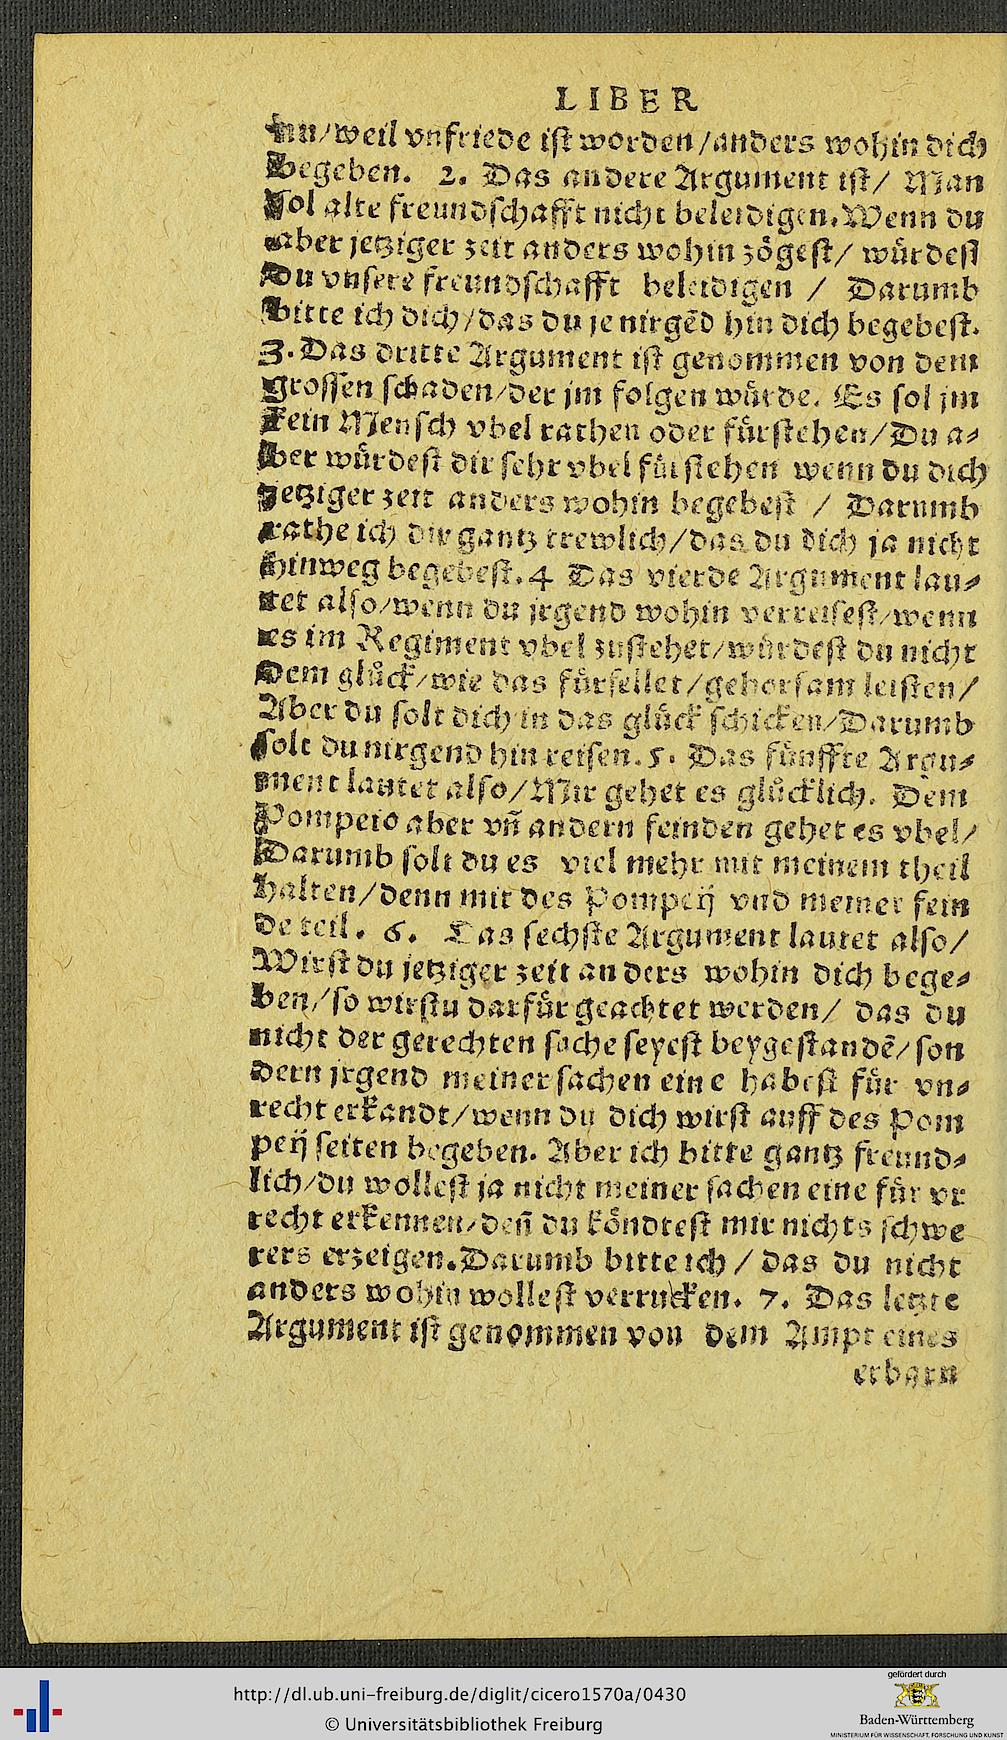 LIBER
nu/weil vnfriede ist worden/anders wohin dich
begeben. 2. Das andere Argument ist/ Man
sol alte freundschafft nicht beleidigen. Wenn du
aber jetziger zeit anders wohin zögest/ würdest
du vnsere freundschafft beleidigen / Darumb
bitte ich dich/das du je nirgēd hin dich begebest.
3. Das dritte Argument ist genommen von dem
grossen schaden/der jm folgen würde. Es sol jm
kein Mensch vbel rathen oder fürstehen/Du a-
ber würdest dir sehr vbel fürstehen wenn du dich
jetziger zeit anders wohin begebest / Darumb
rathe ich dir gantz trewlich/das du dich ja nicht
hinweg begebest. 4 Das vierde Argument lau-
tet also/wenn du jrgend wohin verreisest/wenn
es im Regiment vbel zustehet/würdest du nicht
dem glück/wie das fürfellet/gehorsam leisten/
Aber du solt dich in das glück schicken/Darumb
solt du nirgend hin reisen. 5. Das fünffte Argu-
ment lautet also/Mir gehet es glücklich. Dem
Pompeio aber vñ andern feinden gehet es vbel/
Darumb solt du es viel mehr mit meinem theil
halten/denn mit des Pompeij vnd meiner fein
de teil. 6. Das sechste Argument lautet also/
Wirst du jetziger zeit anders wohin dich bege-
ben/so wirstu darfür geachtet werden/ das du
nicht der gerechten sache seyest beygestandē/son
dern jrgend meiner sachen eine habest für vn-
recht erkandt/wenn du dich wirst auff des Pom
peij seiten begeben. Aber ich bitte gantz freund-
lich/du wollest ja nicht meiner sachen eine für vn
recht erkennen/deñ du köndtest mir nichts schwe
rers erzeigen. Darumb bitte ich / das du nicht
anders wohin wollest verrucken. 7. Das letzte
Argument ist genommen von dem Ampt eines
erbarn
http://dl.ub.uni-freiburg.de/diglit/cicero1570a/0430
© Universitätsbibliothek Freiburg
gefördert durch
Baden-Württemberg
MINISTERIUM FÜR WISSENSCHAFT, FORSCHUNG UND KUNST